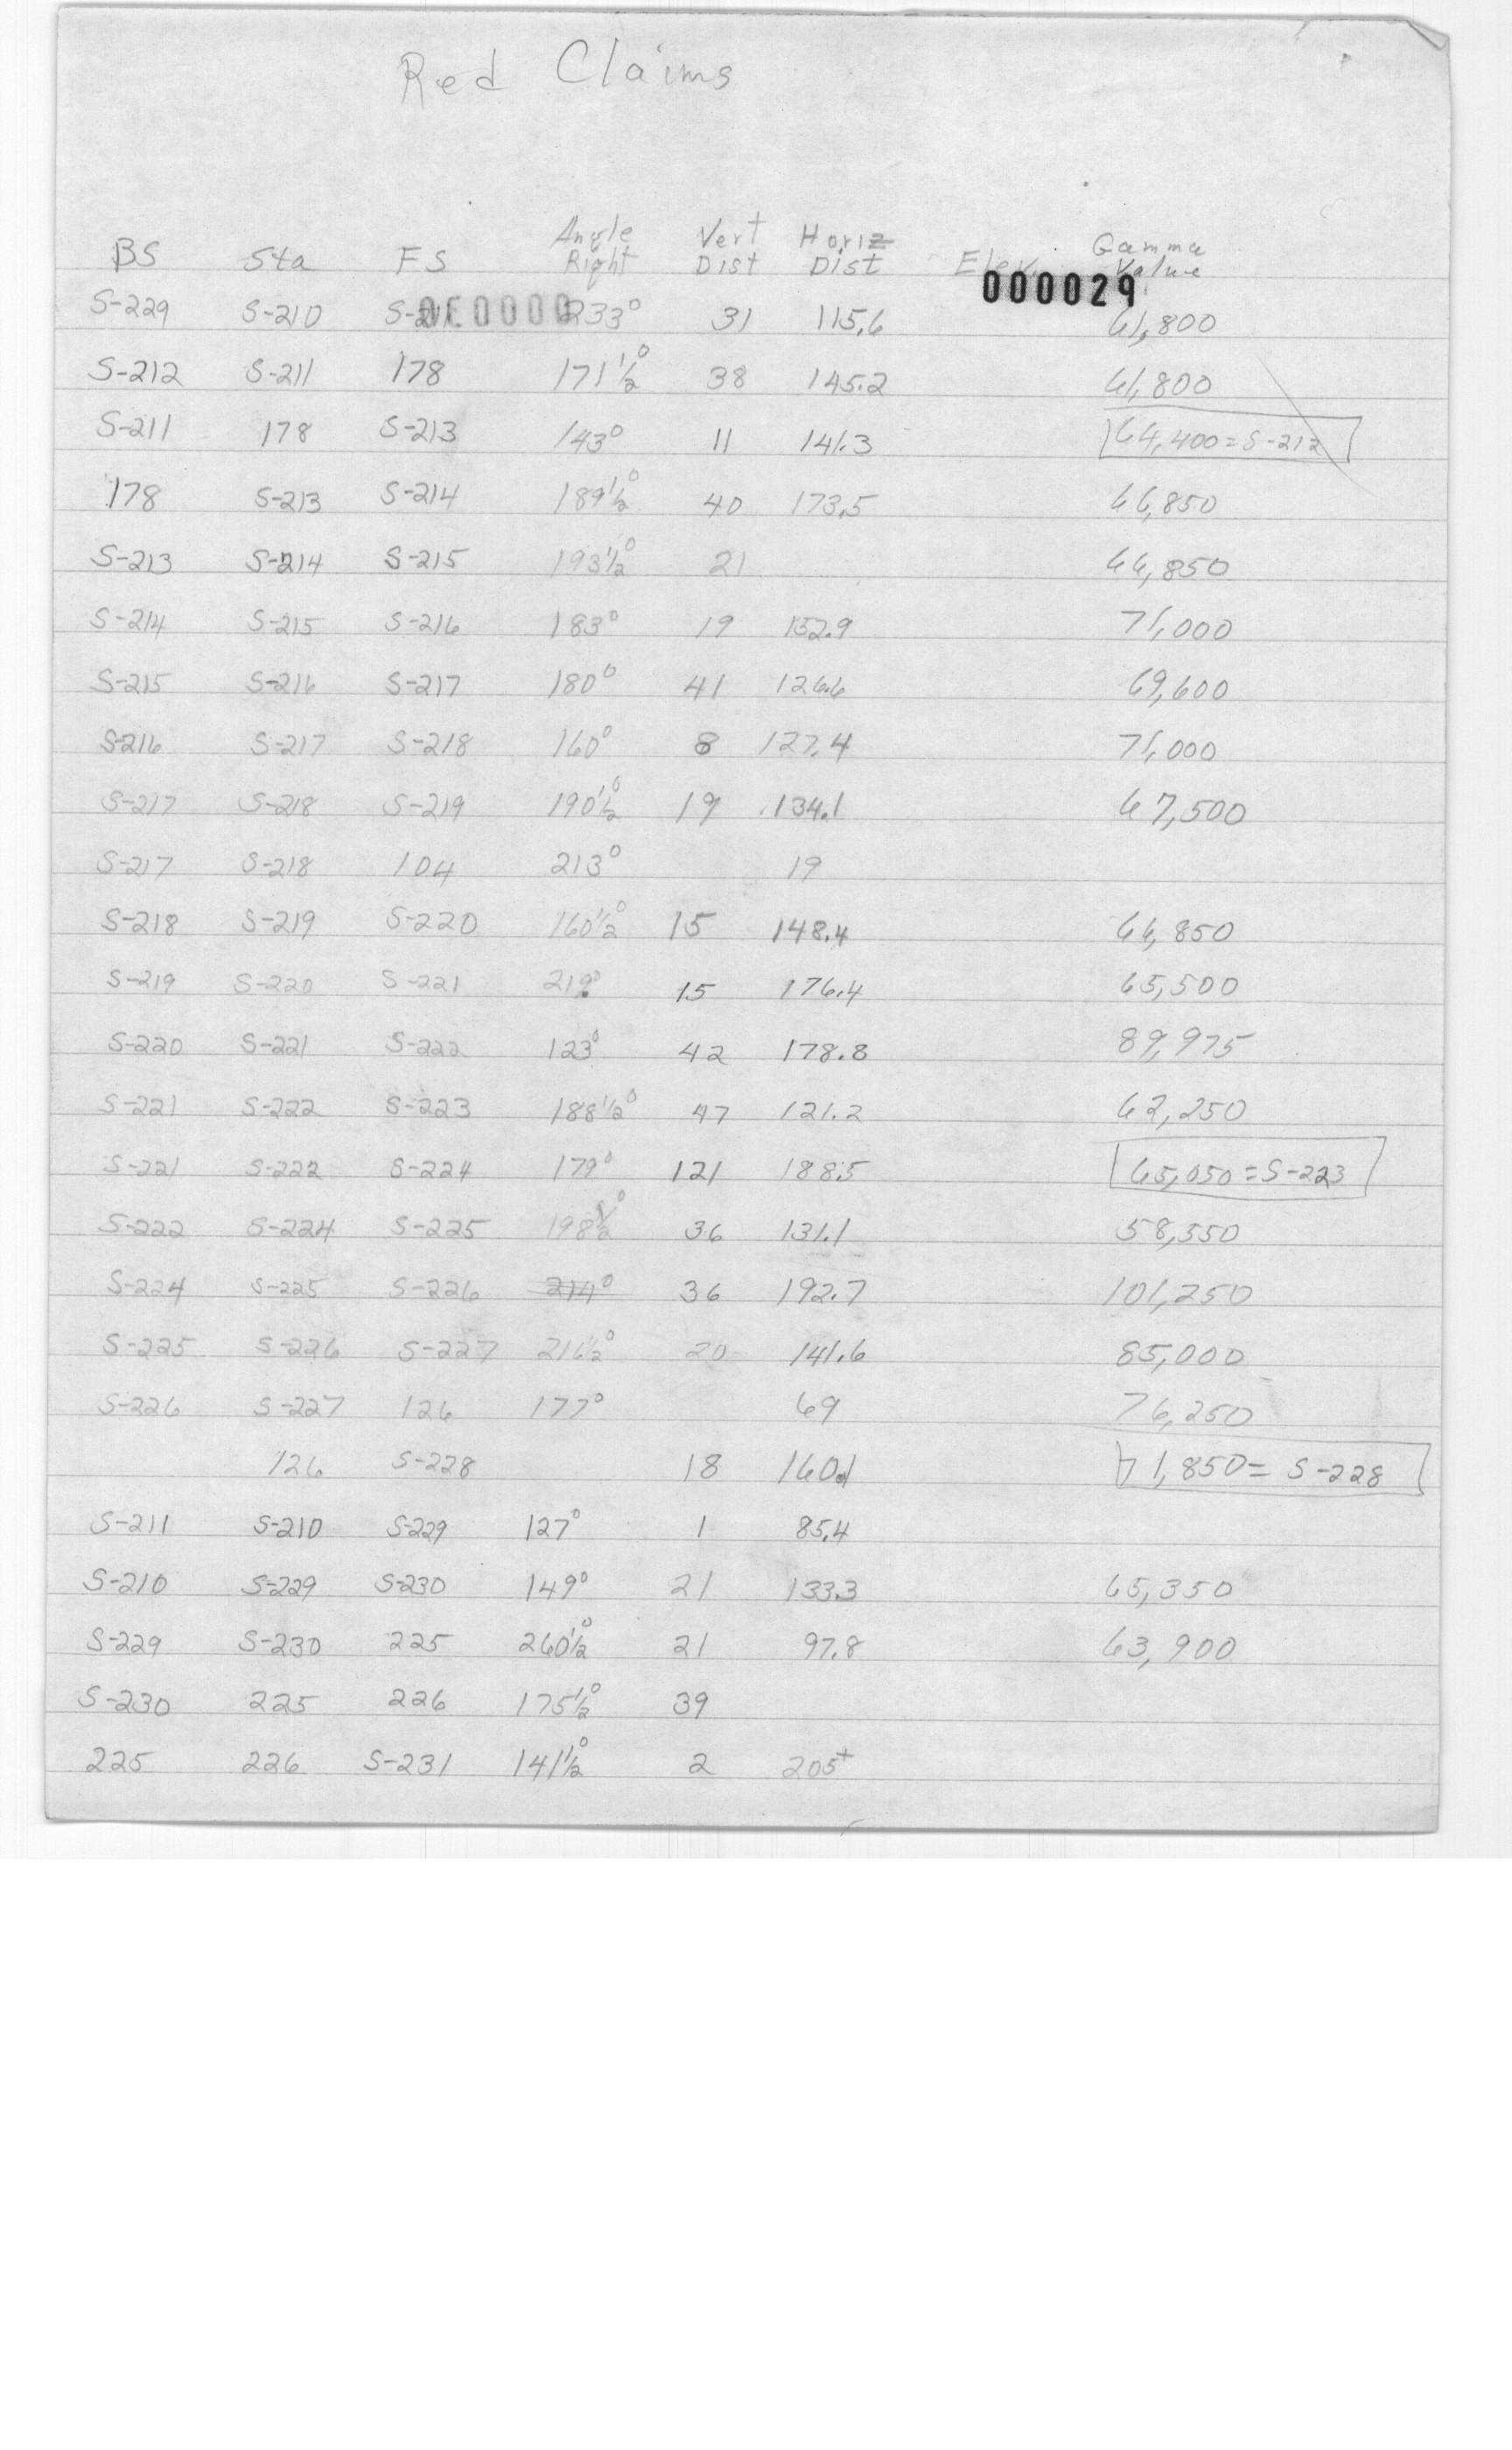 Red Claims
BS Sta FS Angle Right Vert Dist Horiz Dist Elev. Gamma Value
000029
S-229 S-210 233° 31 115.6 61,800
S-212 S-211 178 171½° 38 145.2 61,800
S-211 178 S-213 143° 11 141.3 64,400=S-212
178 S-213 S-214 189½° 40 173.5 66,850
S-213 S-214 S-215 193½° 21 66,850
S-214 S-215 S-216 183° 19 152.9 71,000
S-215 S-216 S-217 180° 41 126.6 69,600
S-216 S-217 S-218 160° 8 127.4 71,000
S-217 S-218 S-219 190½° 19 134.1 67,500
S-217 S-218 104 213° 19
S-218 S-219 S-220 160½° 15 148.4 66,850
S-219 S-220 S-221 219° 15 176.4 65,500
S-220 S-221 S-222 123° 42 178.8 89,975
S-221 S-222 S-223 188½° 47 121.2 62,250
S-221 S-222 S-224 179° 121 188.5 65,050=S-223
S-222 S-224 S-225 198½° 36 131.1 58,550
S-224 S-225 S-226 214° 36 192.7 101,250
S-225 S-226 S-227 216½° 20 141.6 85,000
S-226 S-227 126 177° 69 76,250
126 S-228 18 160.1 71,850= S-228
S-211 S-210 S-229 127° 1 85.4
S-210 S-229 S-230 149° 21 133.3 65,350
S-229 S-230 225 260½° 21 97.8 63,900
S-230 225 226 175½° 39
225 226 S-231 141½° 2 205+